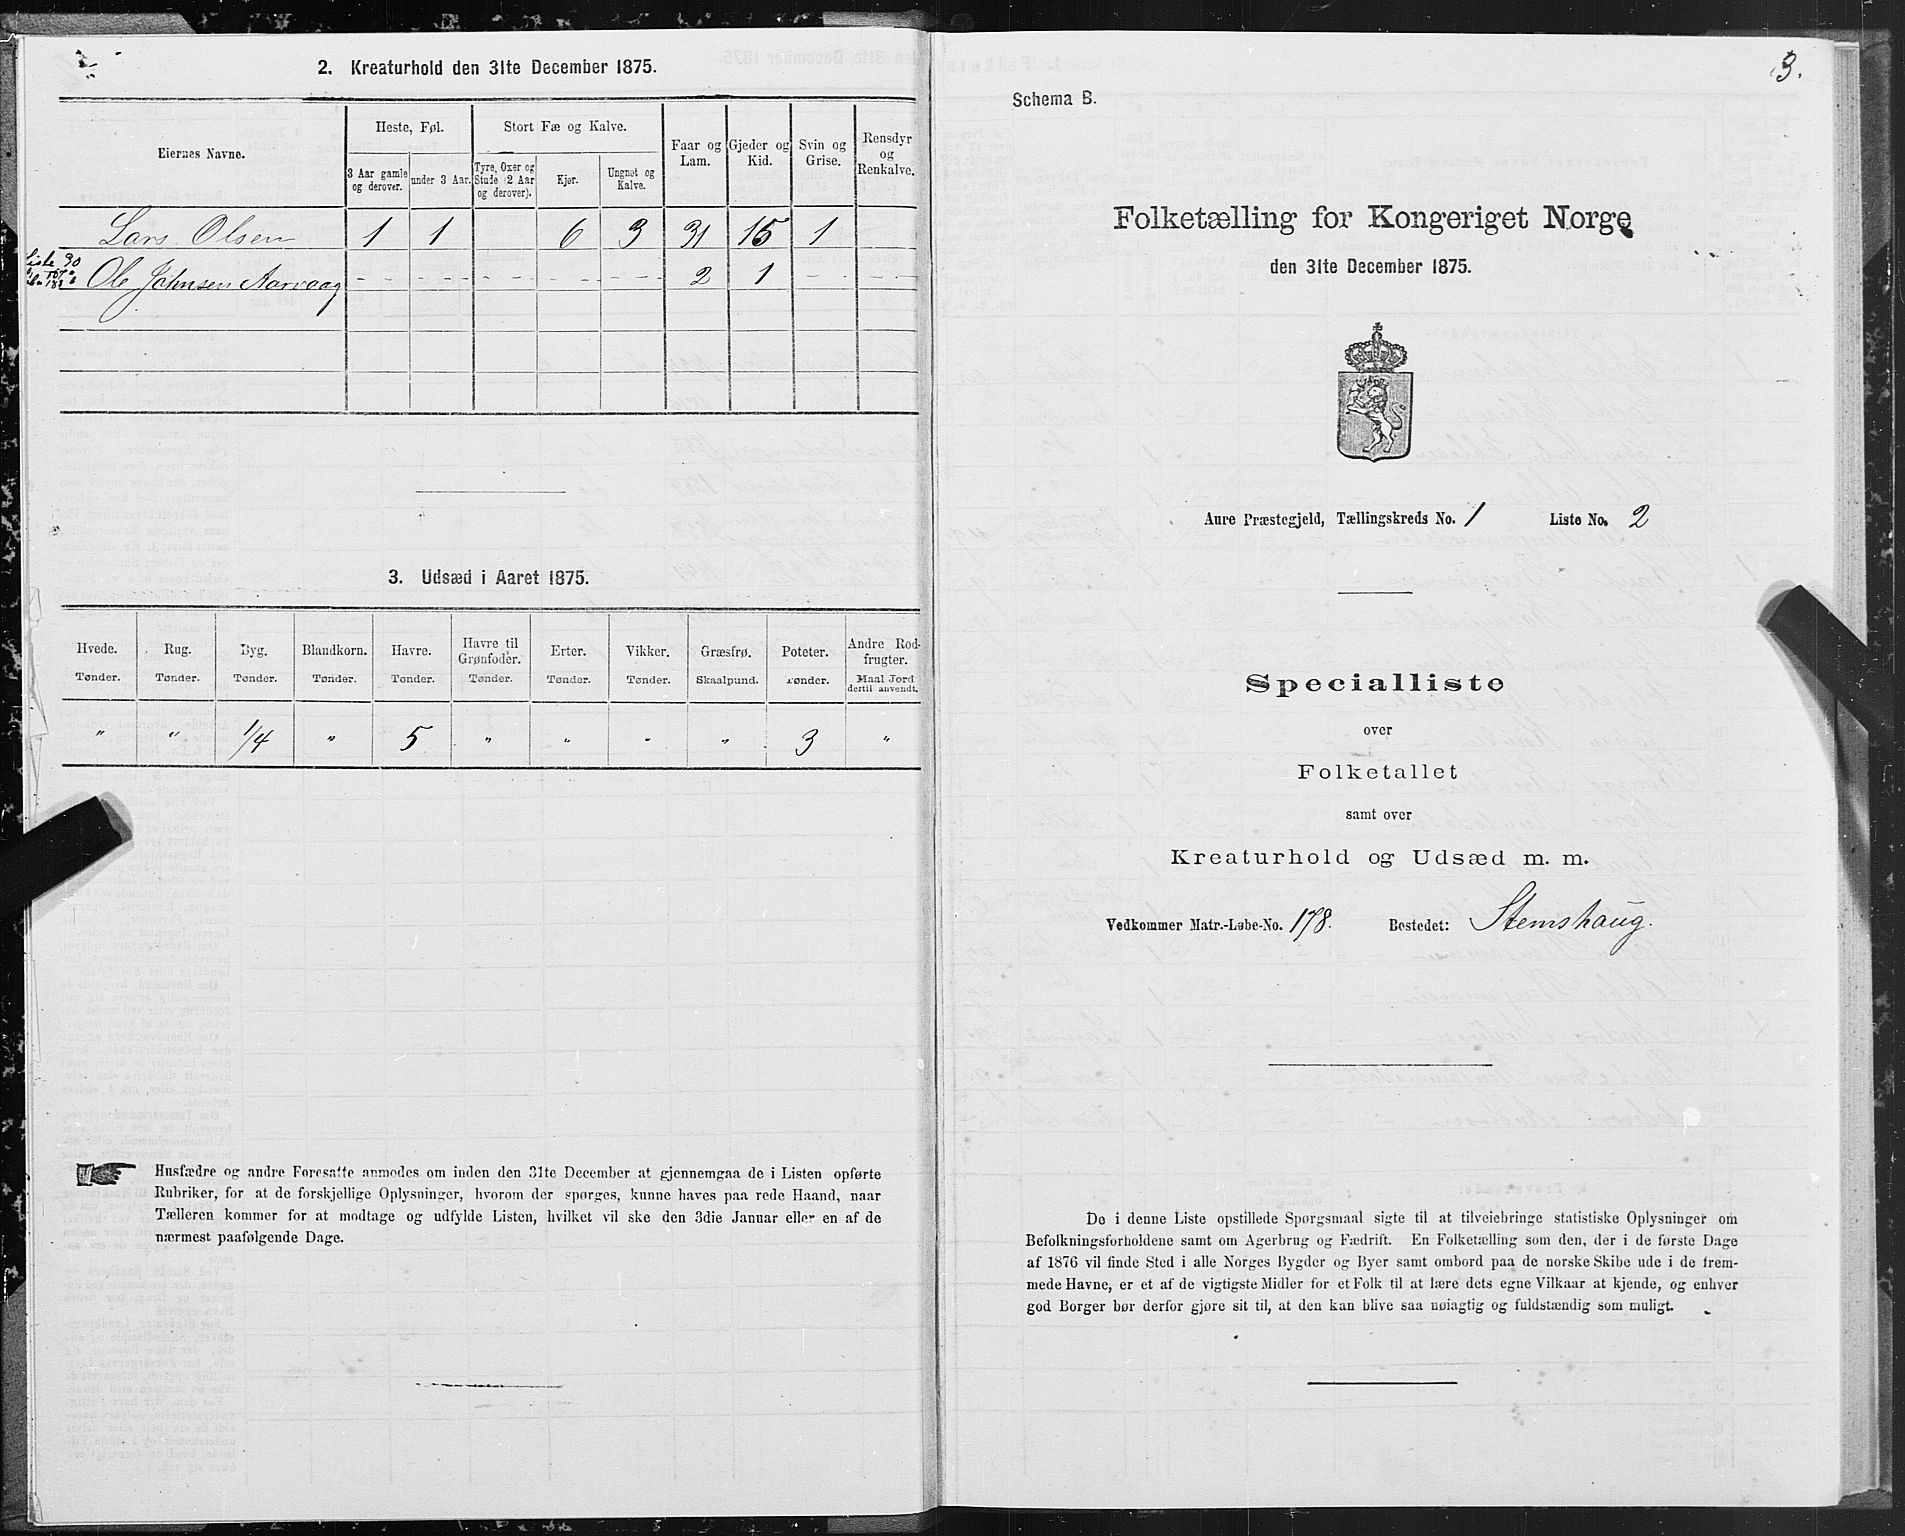 2. Kreaturhold den 31te December 1875.
Eiernes Navne.
Heste, Føl.
Stort Fæ og Kalve.
Faar og Lam.
Gjeder og Kid.
Svin og Grise.
Rensdyr og Renkalve.
3 Aar gamle og derover.
under 3 Aar.
Tyre, Oxer og Stude (2 Aar og derover).
Kjør.
Ungnøt og Kalve.
Lars Olsen 1 1 6 3 31 15 1
Liste 30
Ole Johnsen Aarvaag - - - - - 2 1 - -
3. Udsæd i Aaret 1875.
Hvede. Rug. Byg. Blandkorn. Havre. Havre til Grønfoder. Erter. Vikker. Græsfrø. Poteter. Andre Rodfrugter.
Tønder. Tønder. Tønder. Tønder. Tønder. Tønder. Tønder. Tønder. Skaalpund. Tønder. Maal Jord dertil anvendt.
" " 1/4 " 5 " " " " 3 "
Husfædre og andre Foresatte anmodes om inden den 31te December at gjennemgaa de i Listen opførte
Rubriker, for at de forskjellige Oplysninger, hvorom der spørges, kunne haves paa rede Haand, naar
Tælleren kommer for at modtage og udfylde Listen, hvilket vil ske den 3die Januar eller en af de
nærmest paafølgende Dage.
3.
Schema B.
Folketælling for Kongeriget Norge
den 31te December 1875.
Aure Præstegjeld, Tællingskreds No. 1 Liste No. 2
Specialliste
over
Folketallet
samt over
Kreaturhold og Udsæd m. m.
Vedkommer Matr.-Løbe-No. 178. Bostedet: Stemshaug.
De i denne Liste opstillede Spørgsmaal sigte til at tilveiebringe statistiske Oplysninger om
Befolkningsforholdene samt om Agerbrug og Fædrift. En Folketælling som den, der i de første Dage
af 1876 vil finde Sted i alle Norges Bygder og Byer samt ombord paa de norske Skibe ude i de frem-
mede Havne, er et af de vigtigste Midler for et Folk til at lære dets egne Vilkaar at kjende, og enhver
god Borger bør derfor gjøre sit til, at den kan blive saa nøiagtig og fuldstændig som muligt.